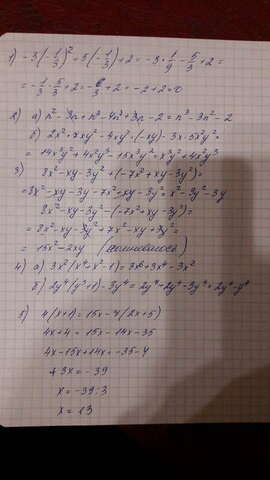 1) -3(-1/3)² + 5(-1/3) + 2 = -3 · 1/9 - 5/3 + 2 =
= -1/3 - 5/3 + 2 = -6/3 + 2 = -2 + 2 = 0
2) а) n² - 3n + n³ - 4n² + 3n - 2 = n³ - 3n² - 2
б) 2x² · 7xy² - 4xy² · (-xy) - 3x · 5x²y² =
= 14x³y² + 4x²y³ - 15x³y² = x³y² + 4x²y³
3) 8x² - xy - 3y² + (-7x² + xy - 3y²) =
= 8x² - xy - 3y - 7x² + xy - 3y² = x² - 3y² - 3y
8x² - xy - 3y² - (-7x² + xy - 3y²) =
= 8x² - xy - 3y² + 7x² - xy + 3y² =
= 15x² - 2xy
4) а) 3x²(x⁴ - x² - 1) = 3x⁶ + 3x⁴ - 3x²
б) 2y⁴(y³ + 1) - 3y⁴ =
5) 4(x+1) = 15x - 7(2x + 5)
4x + 4 = 15x - 14x - 35
4x - 15x + 14x = -35 - 4
3x = -39
x = -39 : 3
x = 13